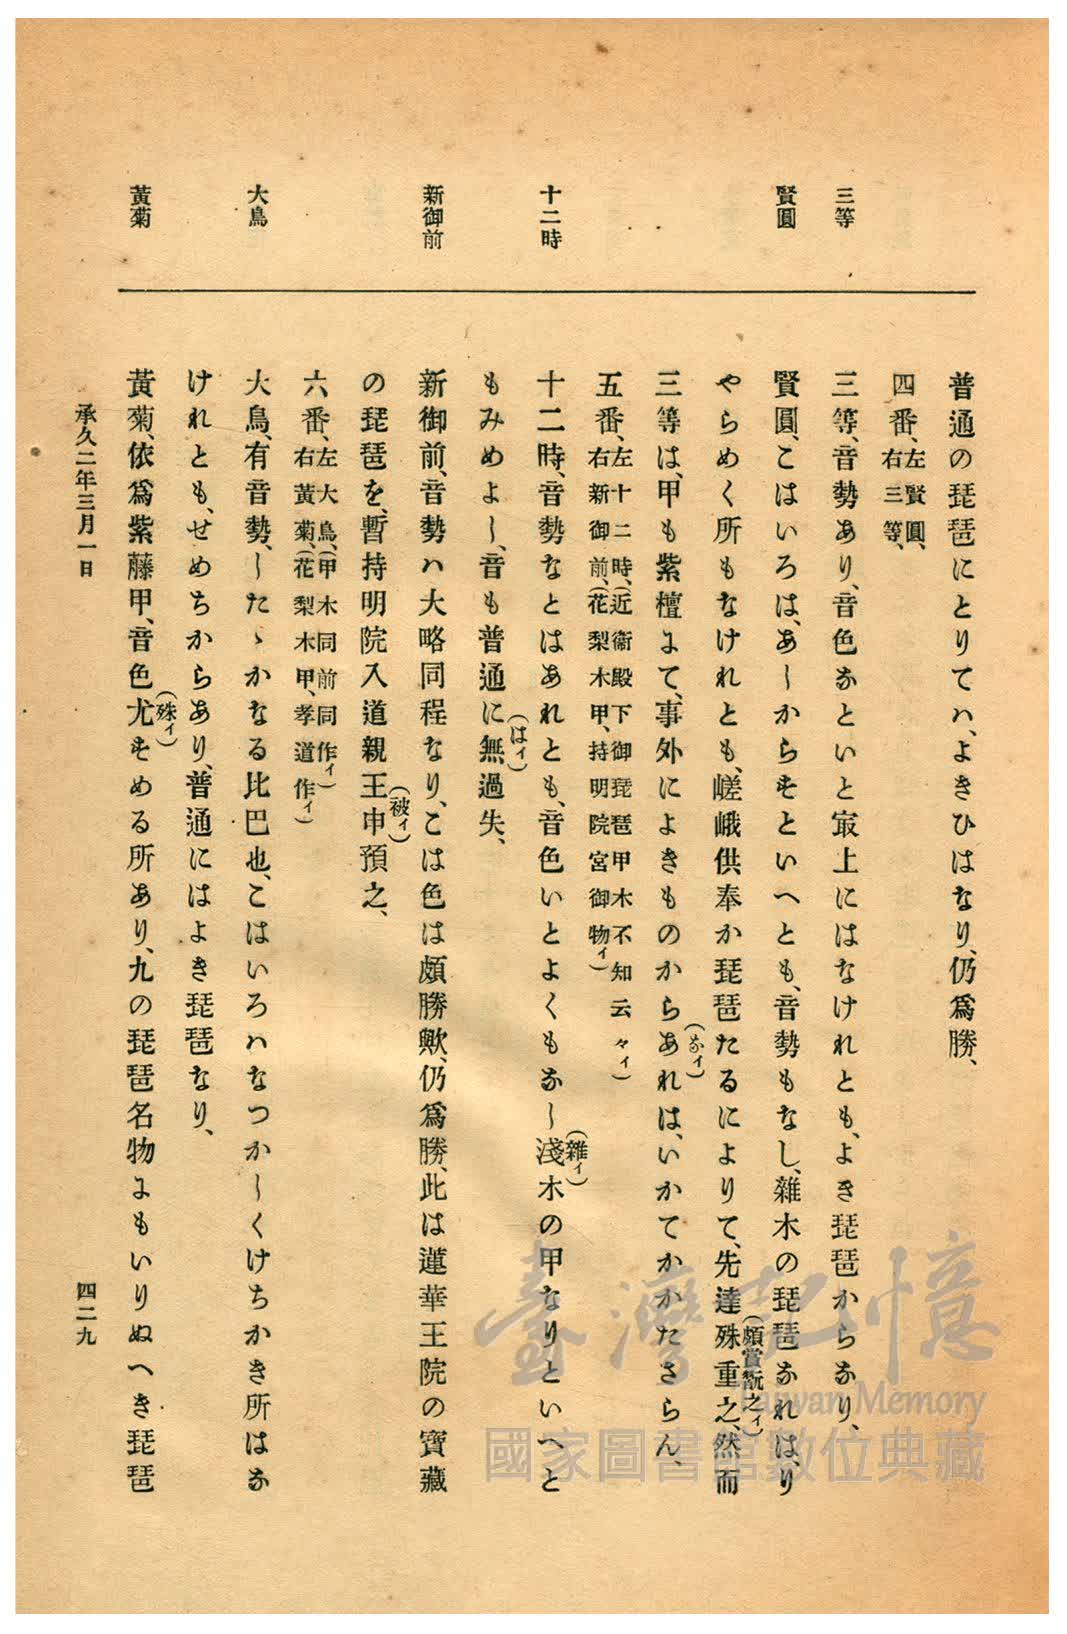 三等
賢圓
十二時
新御前
大鳥
黃菊
普通の琵琶にとりてハ、よきひはなり、仍爲勝、
四番、左賢圓、
右三等、
三等、音勢あり、音色なといと㝡上にはなけれとも、よき琵琶からなり、
賢圓、こはいろは、あしからすといへとも、音勢もなし、雜木の琵琶なれは、り
やらめく所もなけれとも、嵯峨供奉か琵琶たるによりて、先達殊重之、然而
(頗賞翫之ィ)
三等は、甲も紫檀にて、事外によきものからあれは、いかてかかたさらん、
(なィ)
五番、左十二時、(近衞殿下御琵琶甲木不知云々ィ)
右新御前、(花梨木甲、持明院宮御物ィ)
十二時、音勢なとはあれとも、音色いとよくもなし淺木の甲なりといへと
(雜ィ)
もみめよし、音も普通に無過失、
(はィ)
新御前、音勢ハ大略同程なり、こは色は頗勝歟、仍爲勝、此は蓮華王院の寶藏
の琵琶を、暫持明院入道親王申預之、
(被ィ)
六番、左大鳥、(甲木同前同作ィ)
右黃菊、(花梨木甲、孝道作ィ)
大鳥、有音勢、したゝかなる比巴也、こはいろハなつかしくけちかき所はな
けれとも、せめちからあり、普通にはよき琵琶なり、
黃菊、依爲紫藤甲、音色尤すめる所あり、九の琵琶名物にもいりぬへき琵琶
(殊ィ)
承久二年三月一日
四二九
臺灣記憶
Taiwan Memory
國家圖書館數位典藏